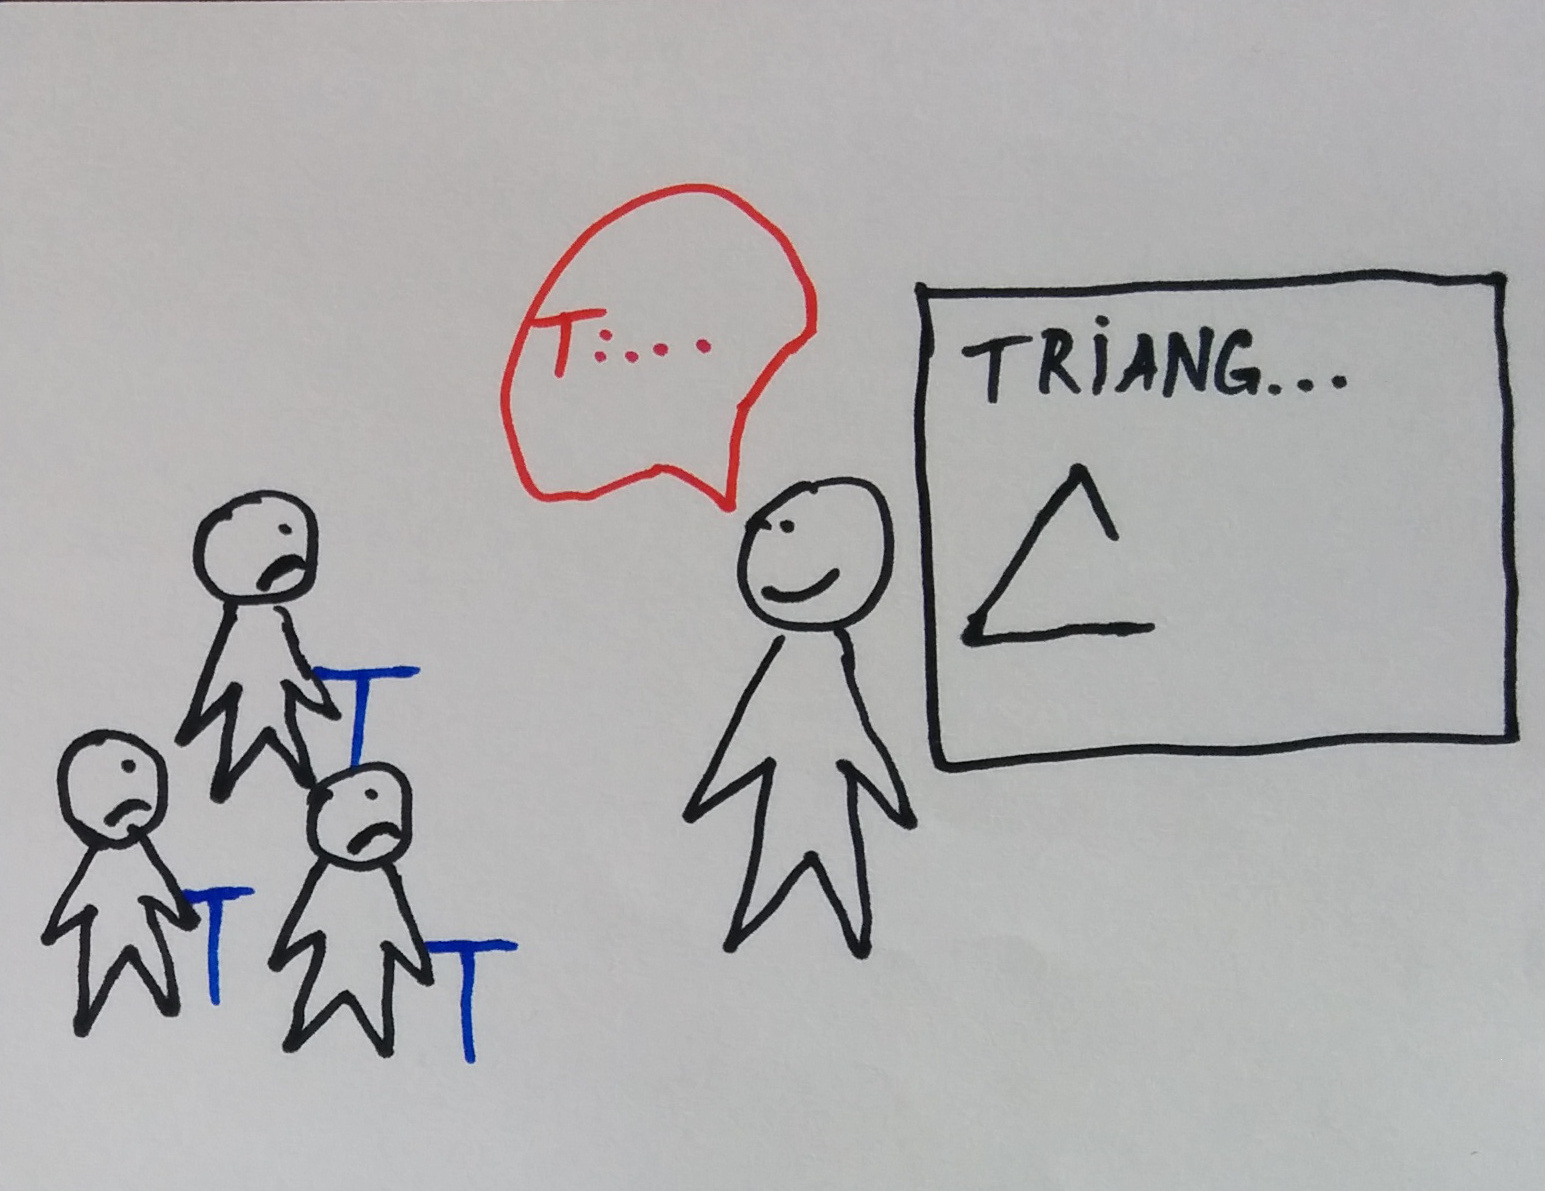 T:...
TRiANG...